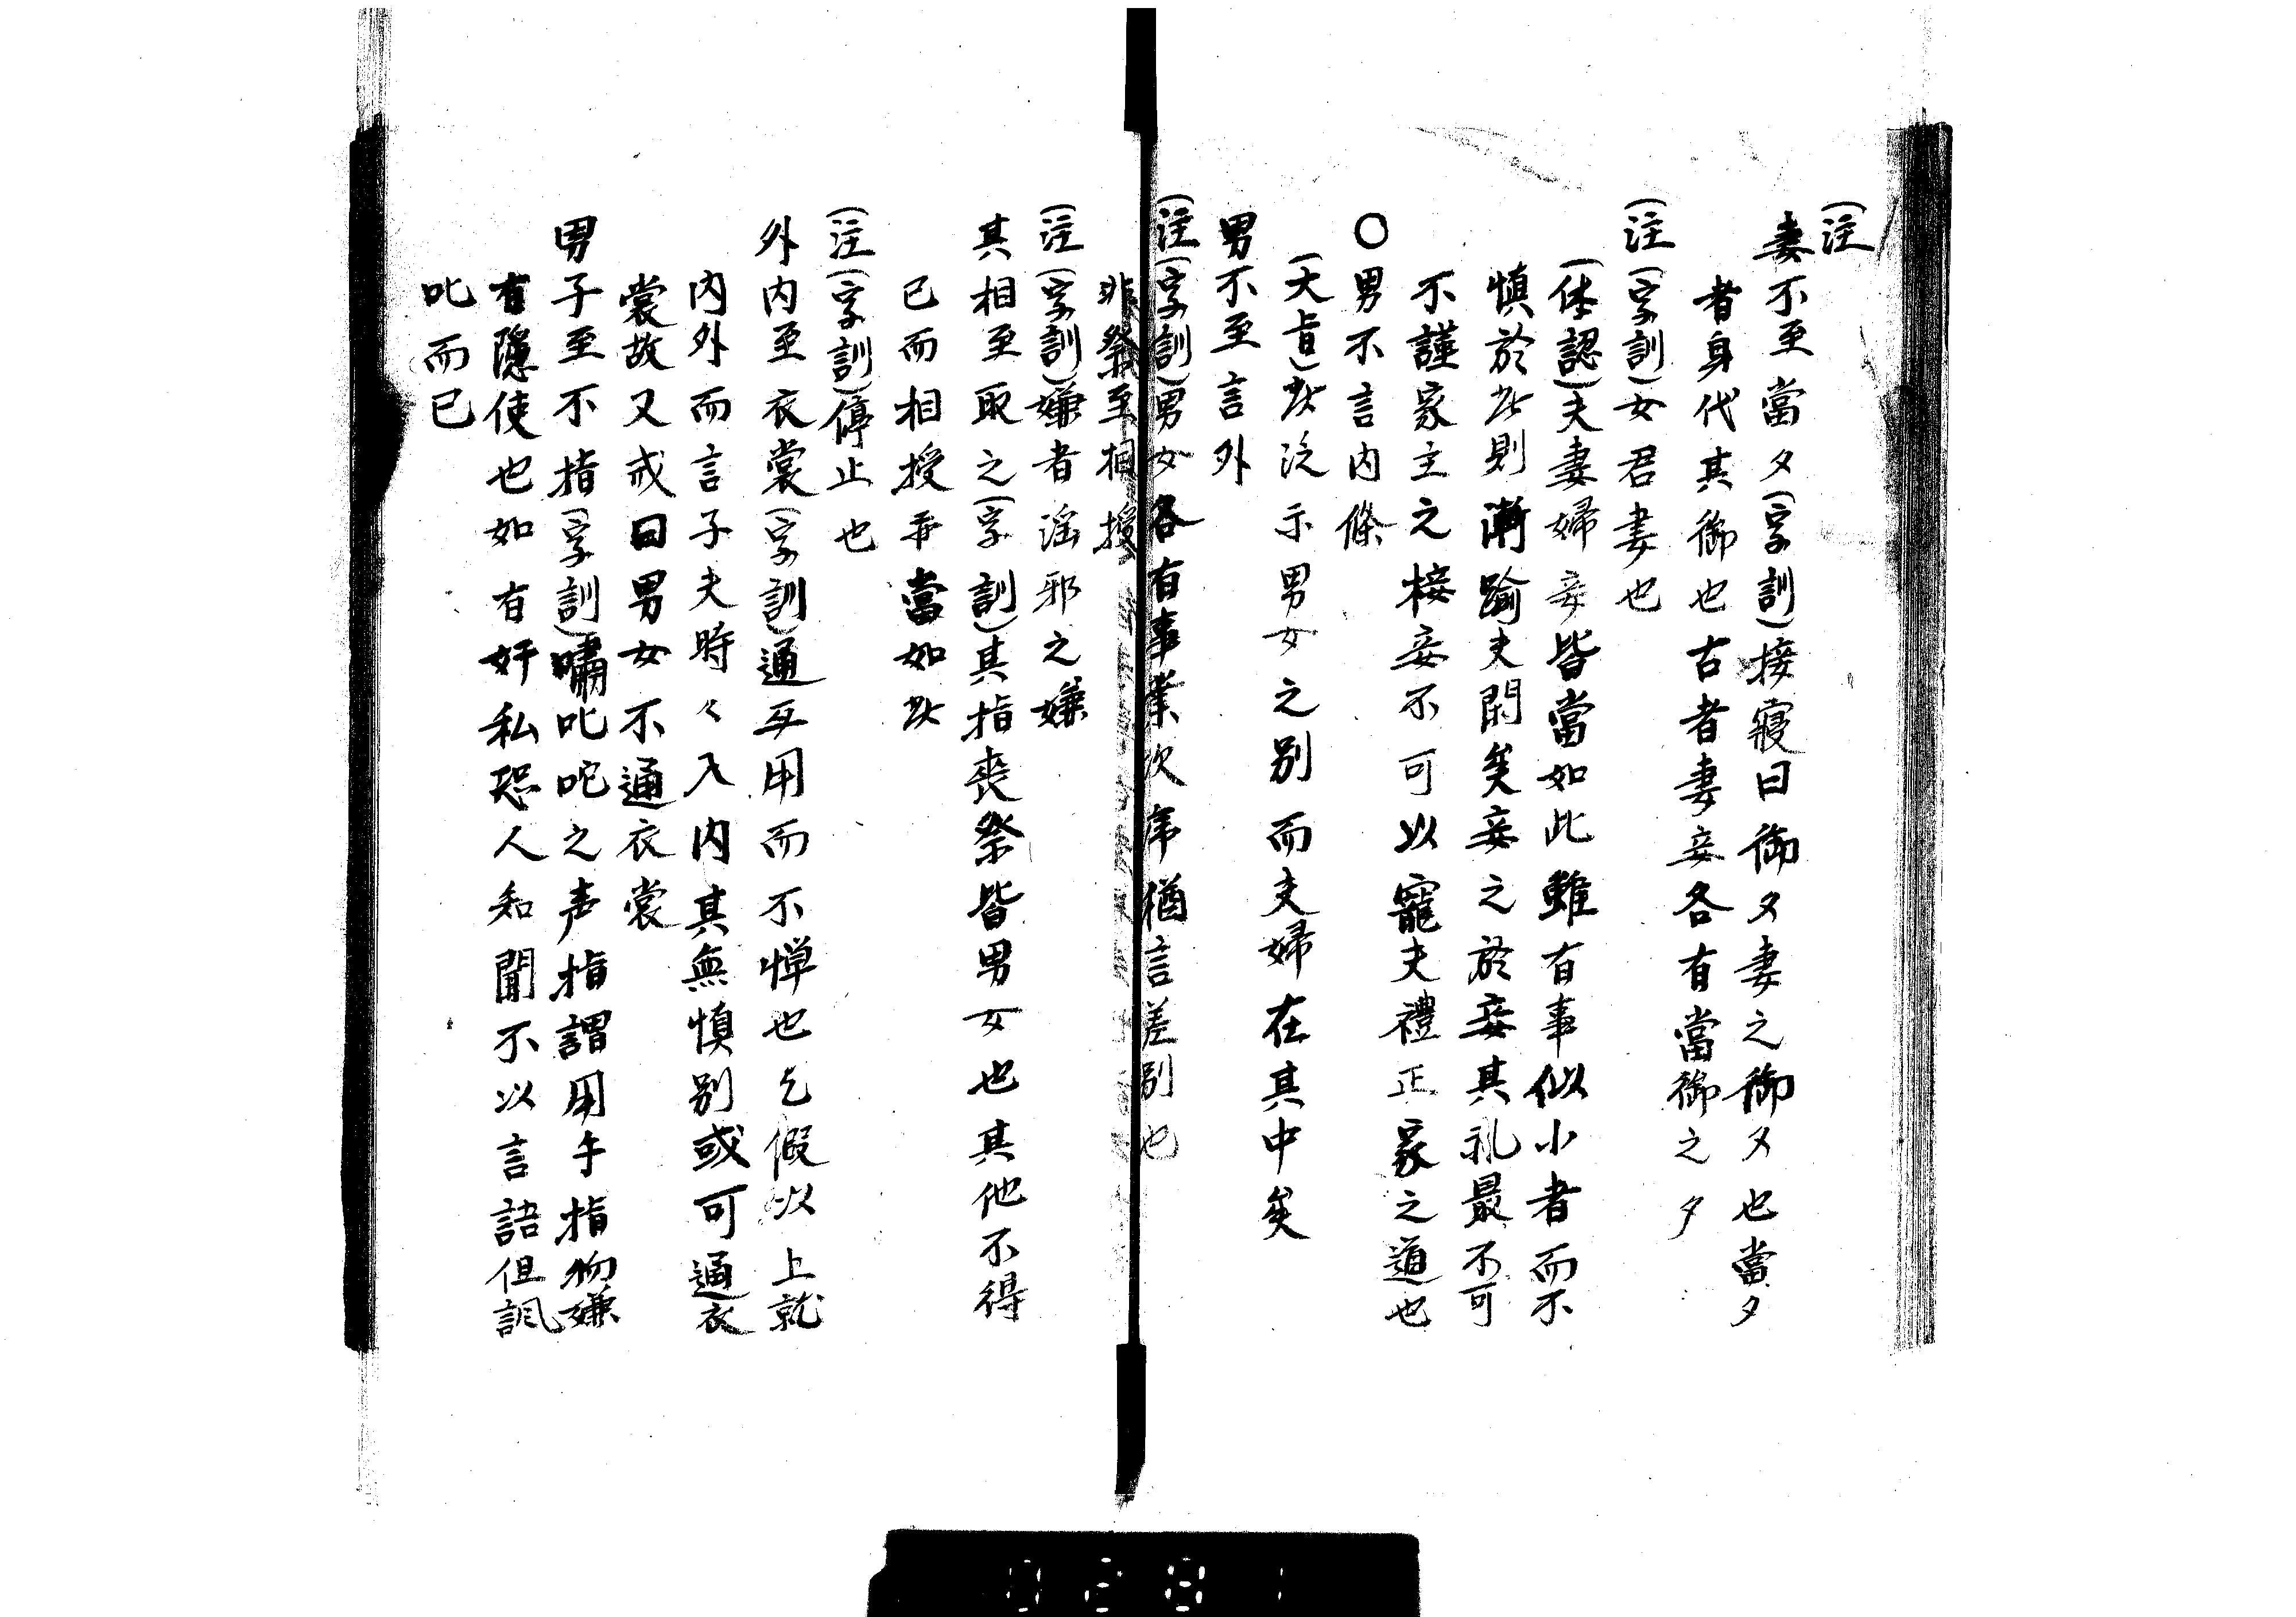 (注
妻不至當夕(字訓)接寢曰御夕妻之御夕也當夕
者身代其御也古者妻妾各有當御之夕
(注(字訓)女君妻也
(体認)夫妻婦妾皆當如此雖有事似小者而不
慎於此則漸踰夫閑矣妾之於妾其礼最不可
不謹家主之接妾不可以寵夫禮正家之道也
○男不言内條
(大旨)此泛示男女之別而夫婦在其中矣
男不至言外
(注(字訓)男女各有事業次序猶言差別也
非祭至相授
(注(字訓)嫌者淫邪之嫌
其相至取之(字訓)其指喪祭皆男女也其他不得
已而相授乎當如此
(注(字訓)停止也
外内至衣裳(字訓)通互用而不憚也乞假以上就
内外而言子夫時々入内其無慎別或可通衣
裳故又戒曰男女不通衣裳
男子至不指(字訓)嘯叱咤之声指謂用手指物嫌
有隠使也如有奸私恐人知聞不以言語但諷
叱而已